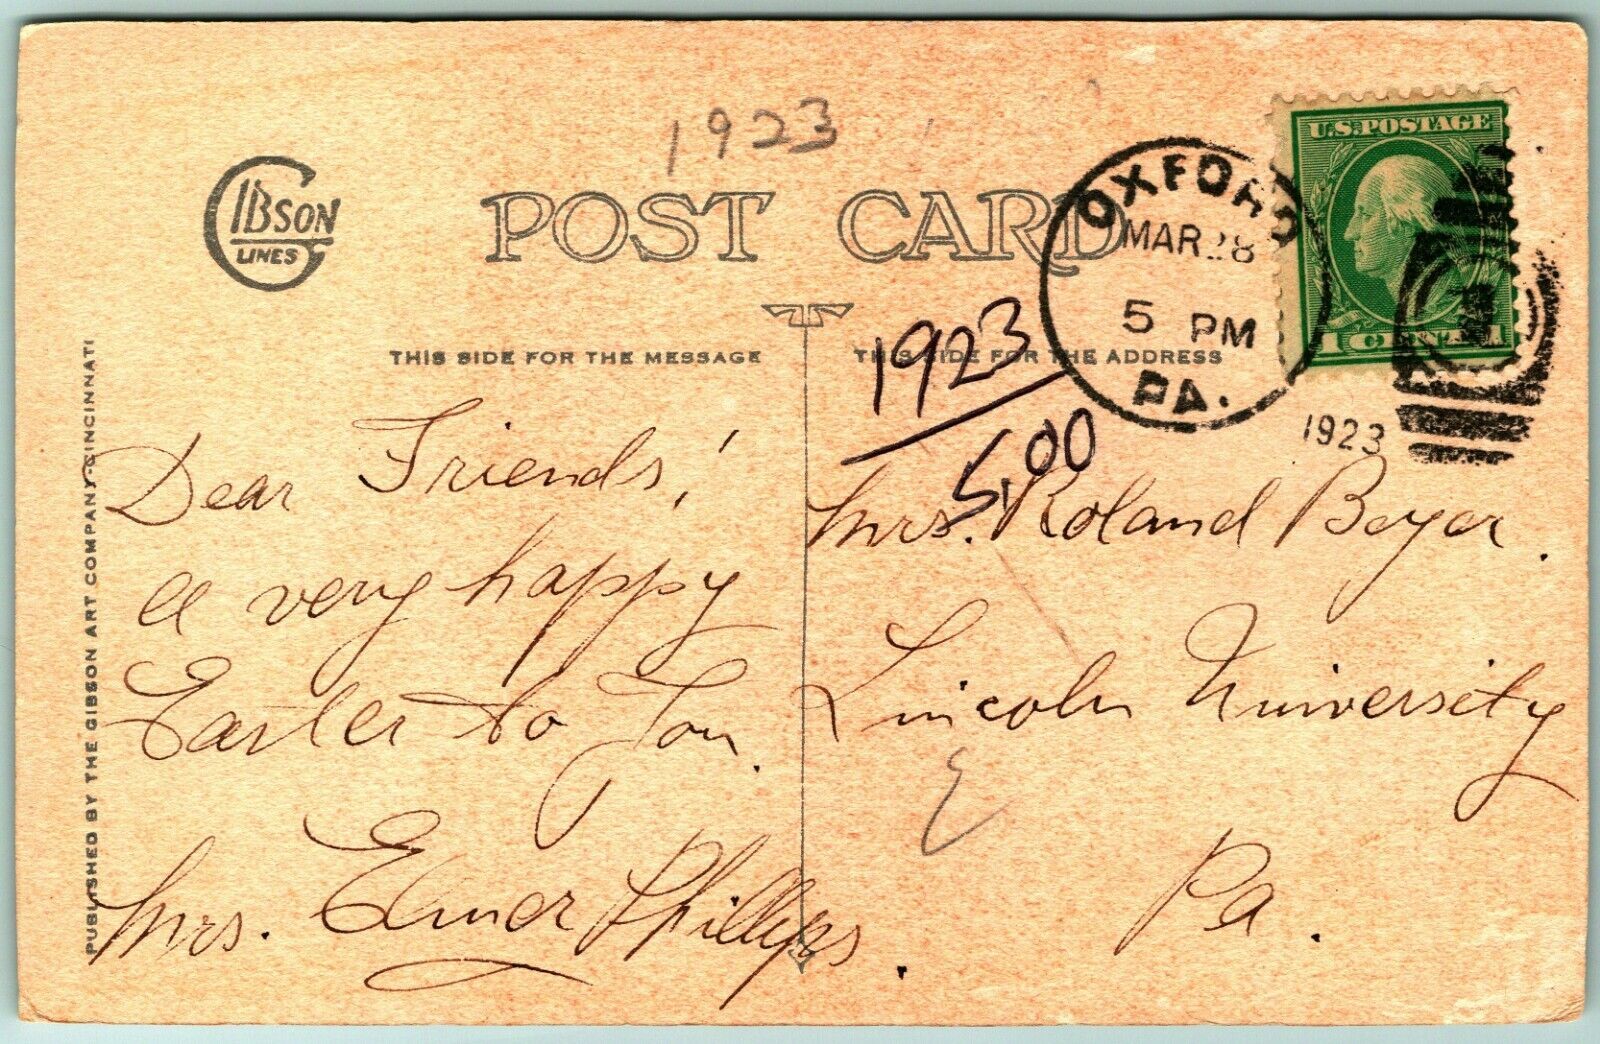 1923
GIBSON
LINES
POST CARD
OXFORD
MAR 28
5 PM
PA.
1923
U.S. POSTAGE
1 CENT 1
THIS SIDE FOR THE MESSAGE
THIS SIDE FOR THE ADDRESS
1923
5.00
PUBLISHED BY THE GIBSON ART COMPANY-CINCINNATI
Dear Friends!
A very happy
Easter to You.
Mrs. Elmer Phillips.
Mrs. Roland Beyer.
Lincoln University
Pa.